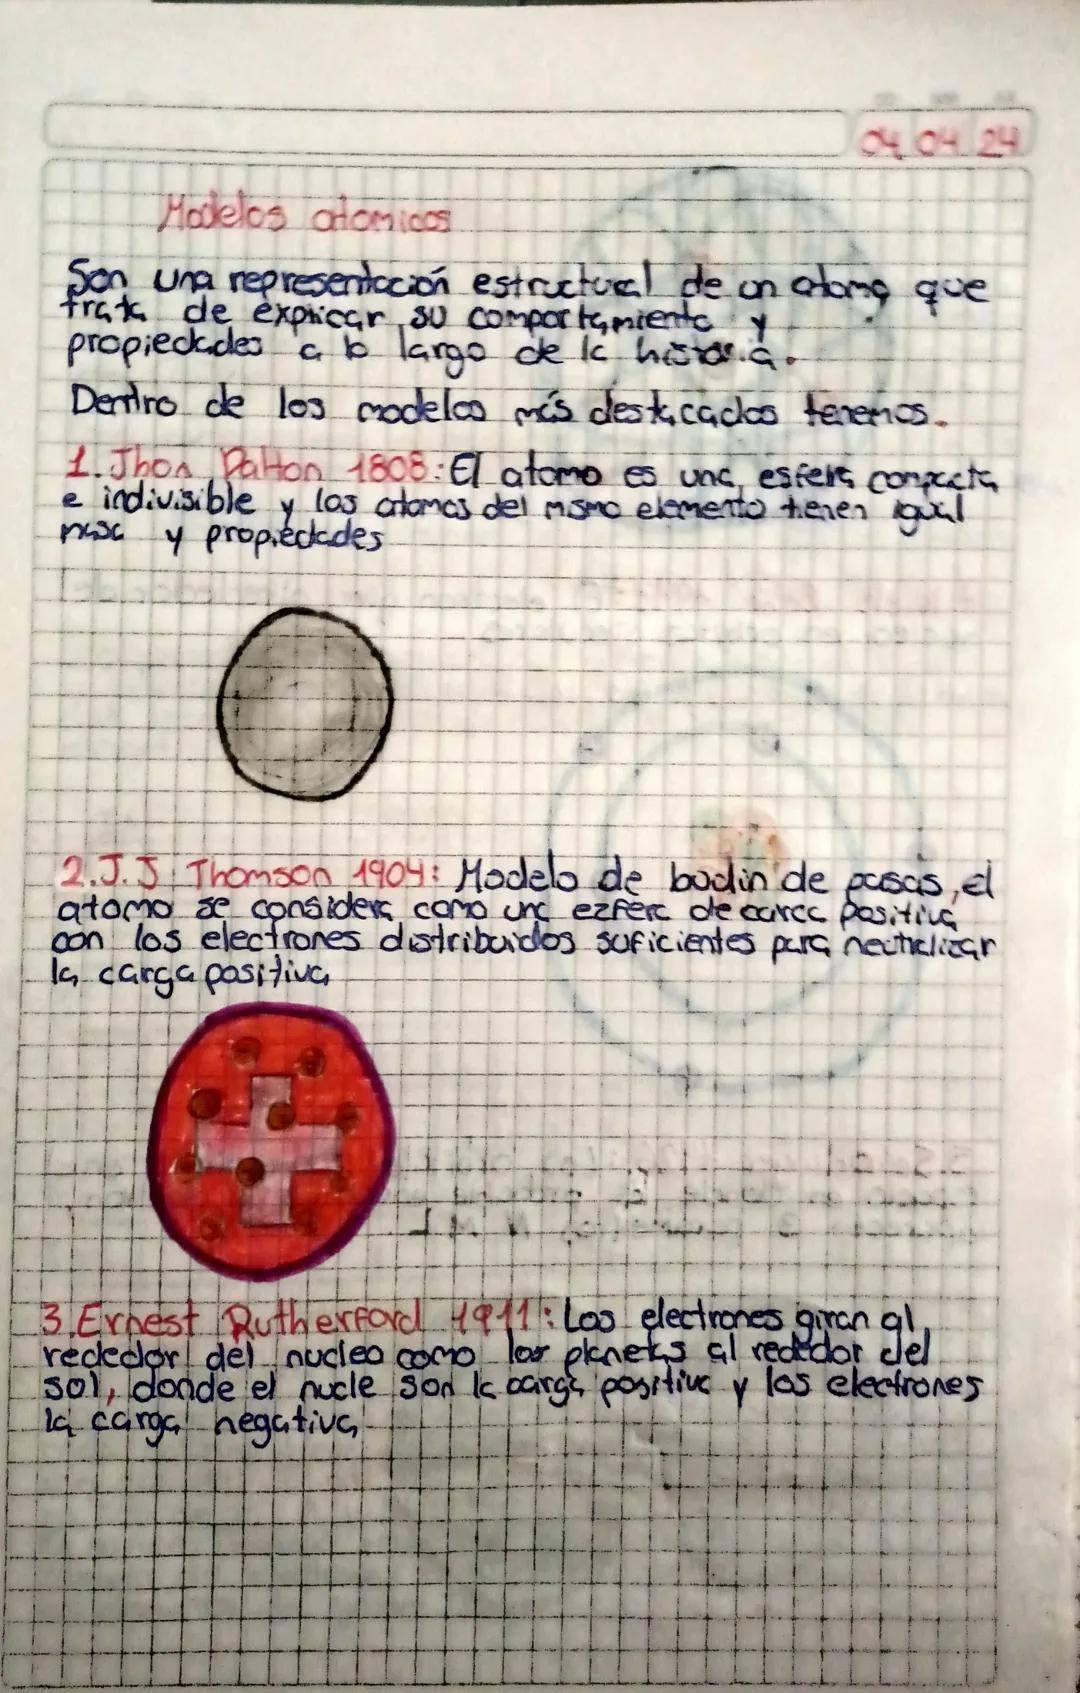 04 04 24
Modelos atomicos
Son una representación estructural de un atomo que
trata de explicar su comportamiento y
propiedades a lo largo de la historia.
Dentro de los modelos más destacados tenemos.
1. Jhon Dalton 1808: El atomo es una esfera compacta
e indivisible y los atomos del mismo elemento tienen igual
masa y propiedades
2. J. J Thomson 1904: Modelo de budin de pasas, el
atomo se considera como una ezfera de carca positiva
con los electrones distribuidos suficientes para neutralizar
la carga positiva
3. Ernest Rutherford 1911: Los electrones giran al
rededor del nucleo como los planetas al rededor del
sol, donde el nucle son la carga positiva y los electrones
la carga negativa